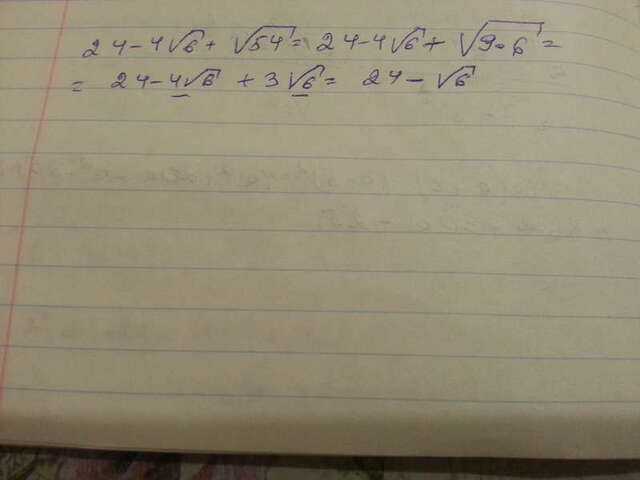 24-4√6+√54=24-4√6+√9·6=
=24-4√6+3√6=24-√6